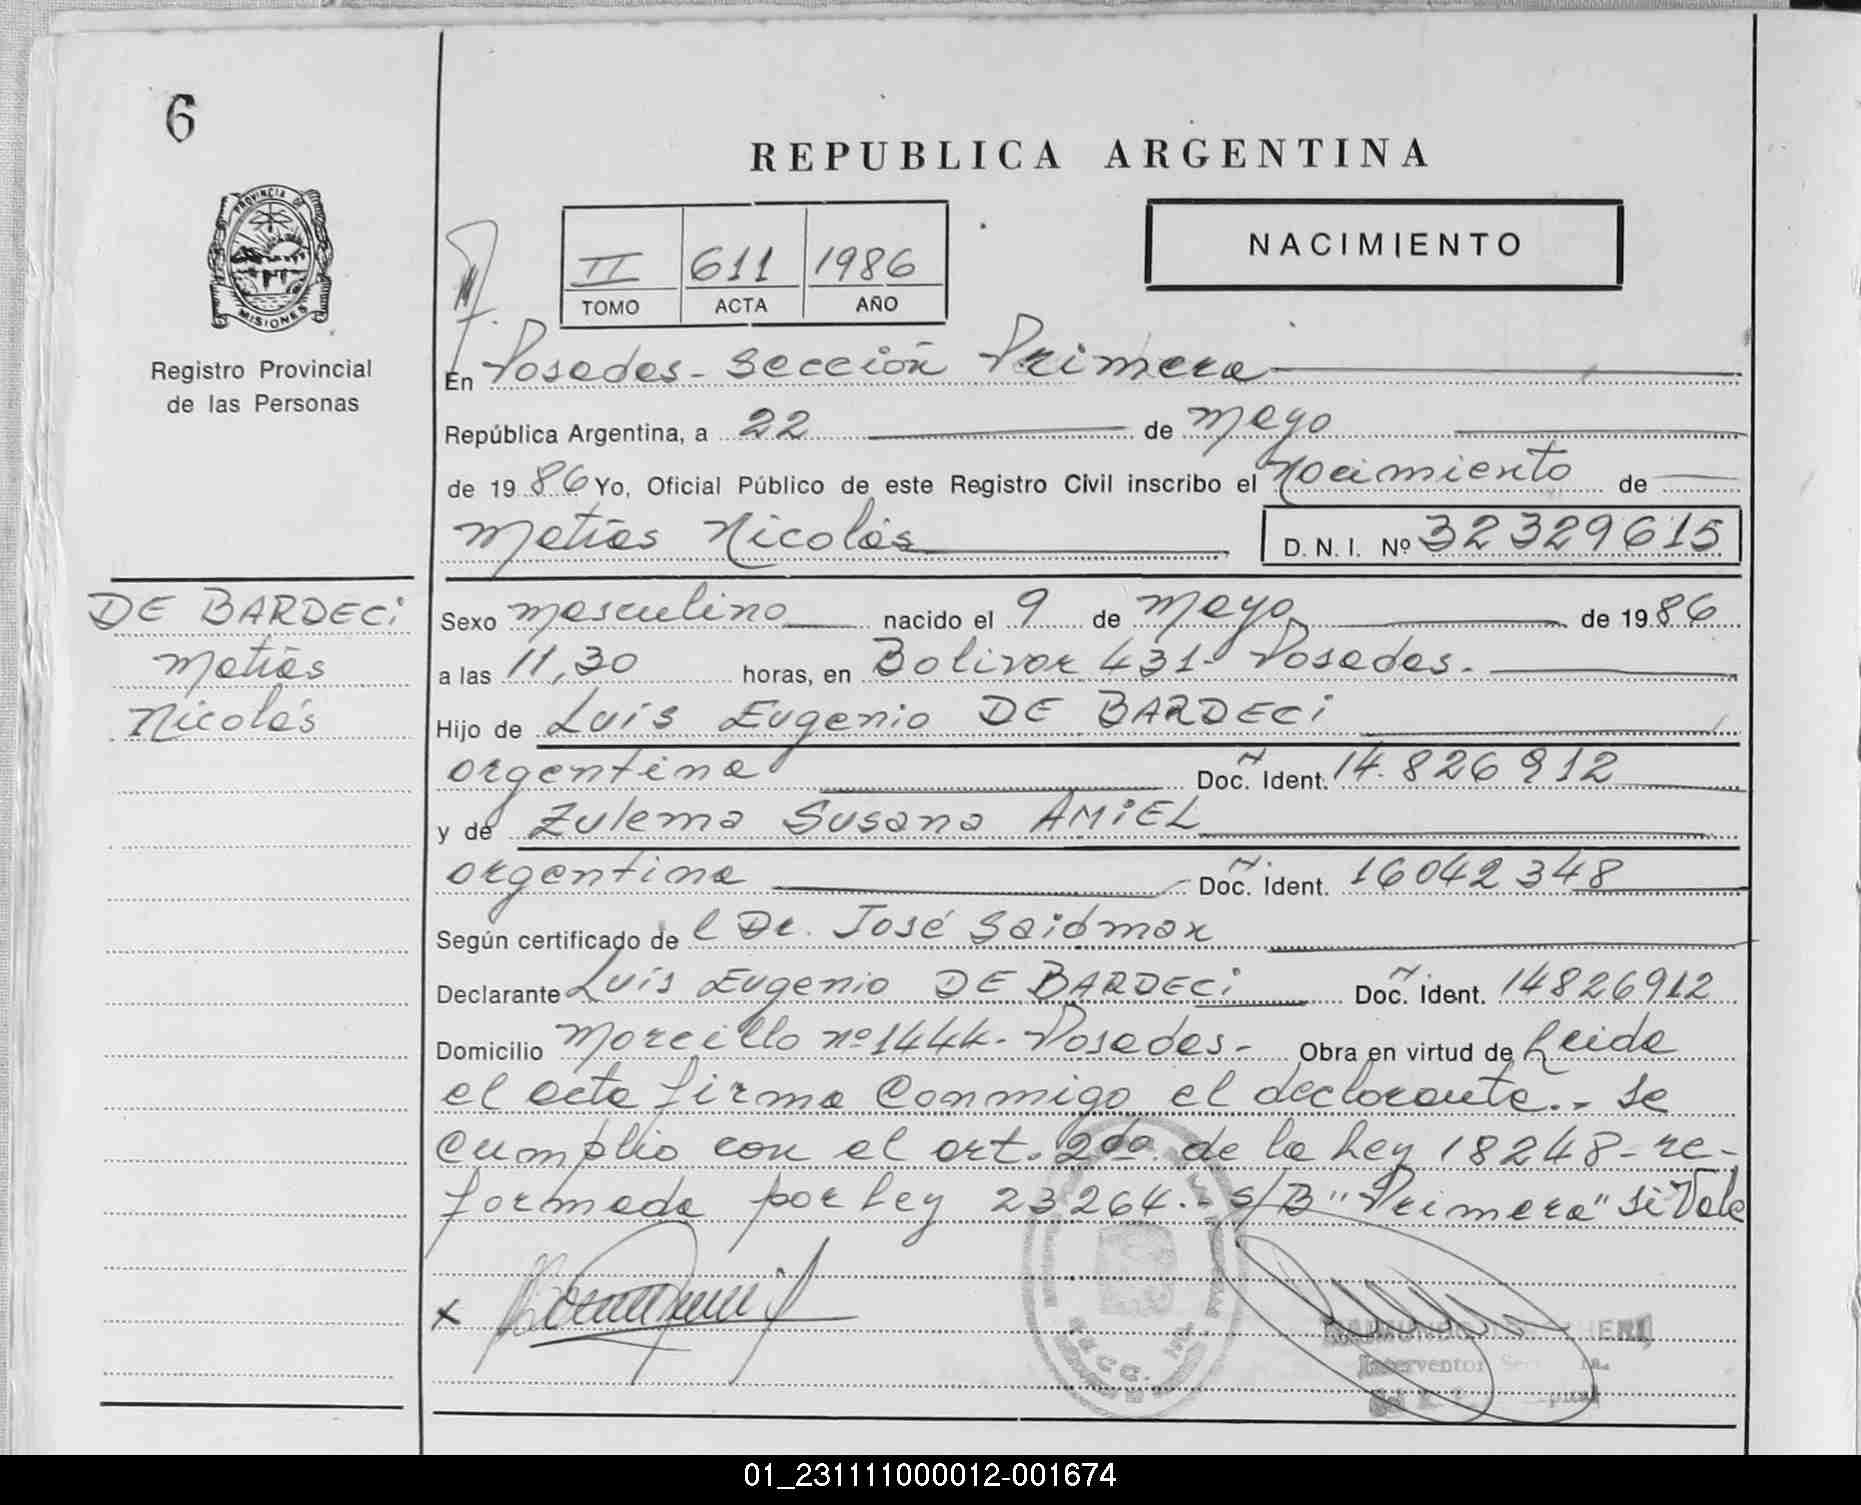 6
REPUBLICA ARGENTINA
PROVINCIA DE
MISIONES
Registro Provincial
de las Personas
II 611 1986
TOMO ACTA AÑO
NACIMIENTO
En Posadas - Sección Primera
República Argentina, a 22 de mayo
de 1986 Yo, Oficial Público de este Registro Civil inscribo el nacimiento de
Matías Nicolás D. N. I. Nº 32329615
DE BARDECi
Matías
Nicolás
Sexo masculino nacido el 9 de mayo de 1986
a las 11,30 horas, en Bolivar 431- Posadas.
Hijo de Luis Eugenio DE BARDECi
argentina Doc. Ident. 14.826912
y de Zulema Susana AMiEL
argentina Doc. Ident. 16042348
Según certificado de l Dr. José Saidman
Declarante Luís Eugenio DE BARDECi Doc. Ident. 14826912
Domicilio Morcillo nº 1444- Posadas- Obra en virtud de Leida
el acta firma conmigo el declarante.- Se
cumplio con el art. 2do. de la Ley 18248 - re-
formada por Ley 23264.- S/B "Primera" Si Vale
x
Interventor
01_231111000012-001674